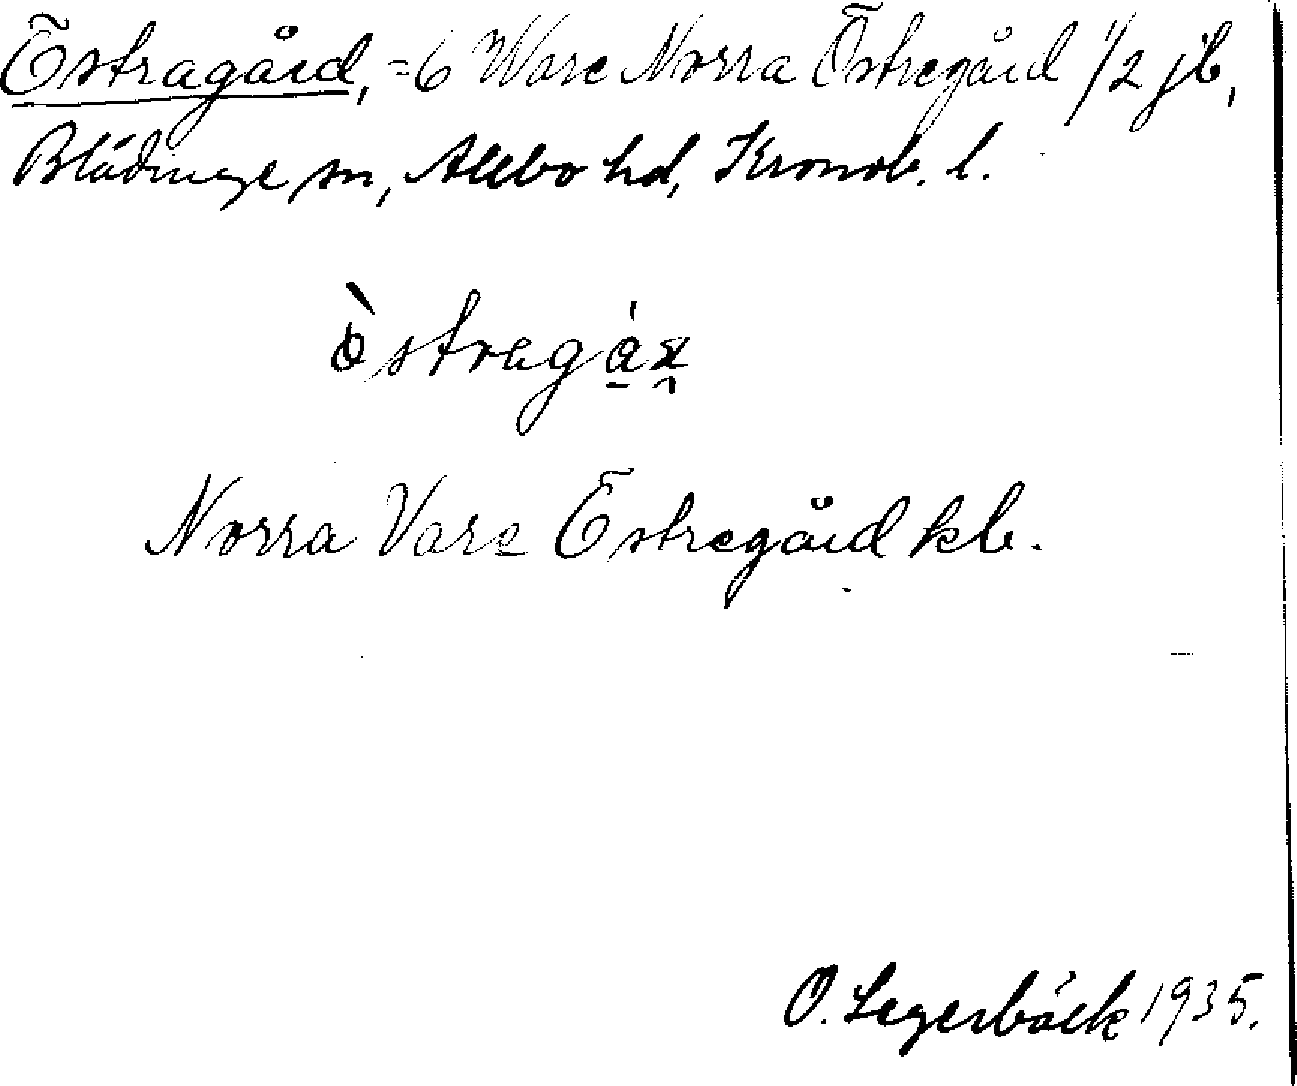 Östragård, =6 Ware Norra Östregård 1/2 jb,
Blädinge sn, Allbo hd, Kronob. l.
òstragá̱ʀ̭
Norra Vare Östregård kb.
O. Segerbäck 1935.